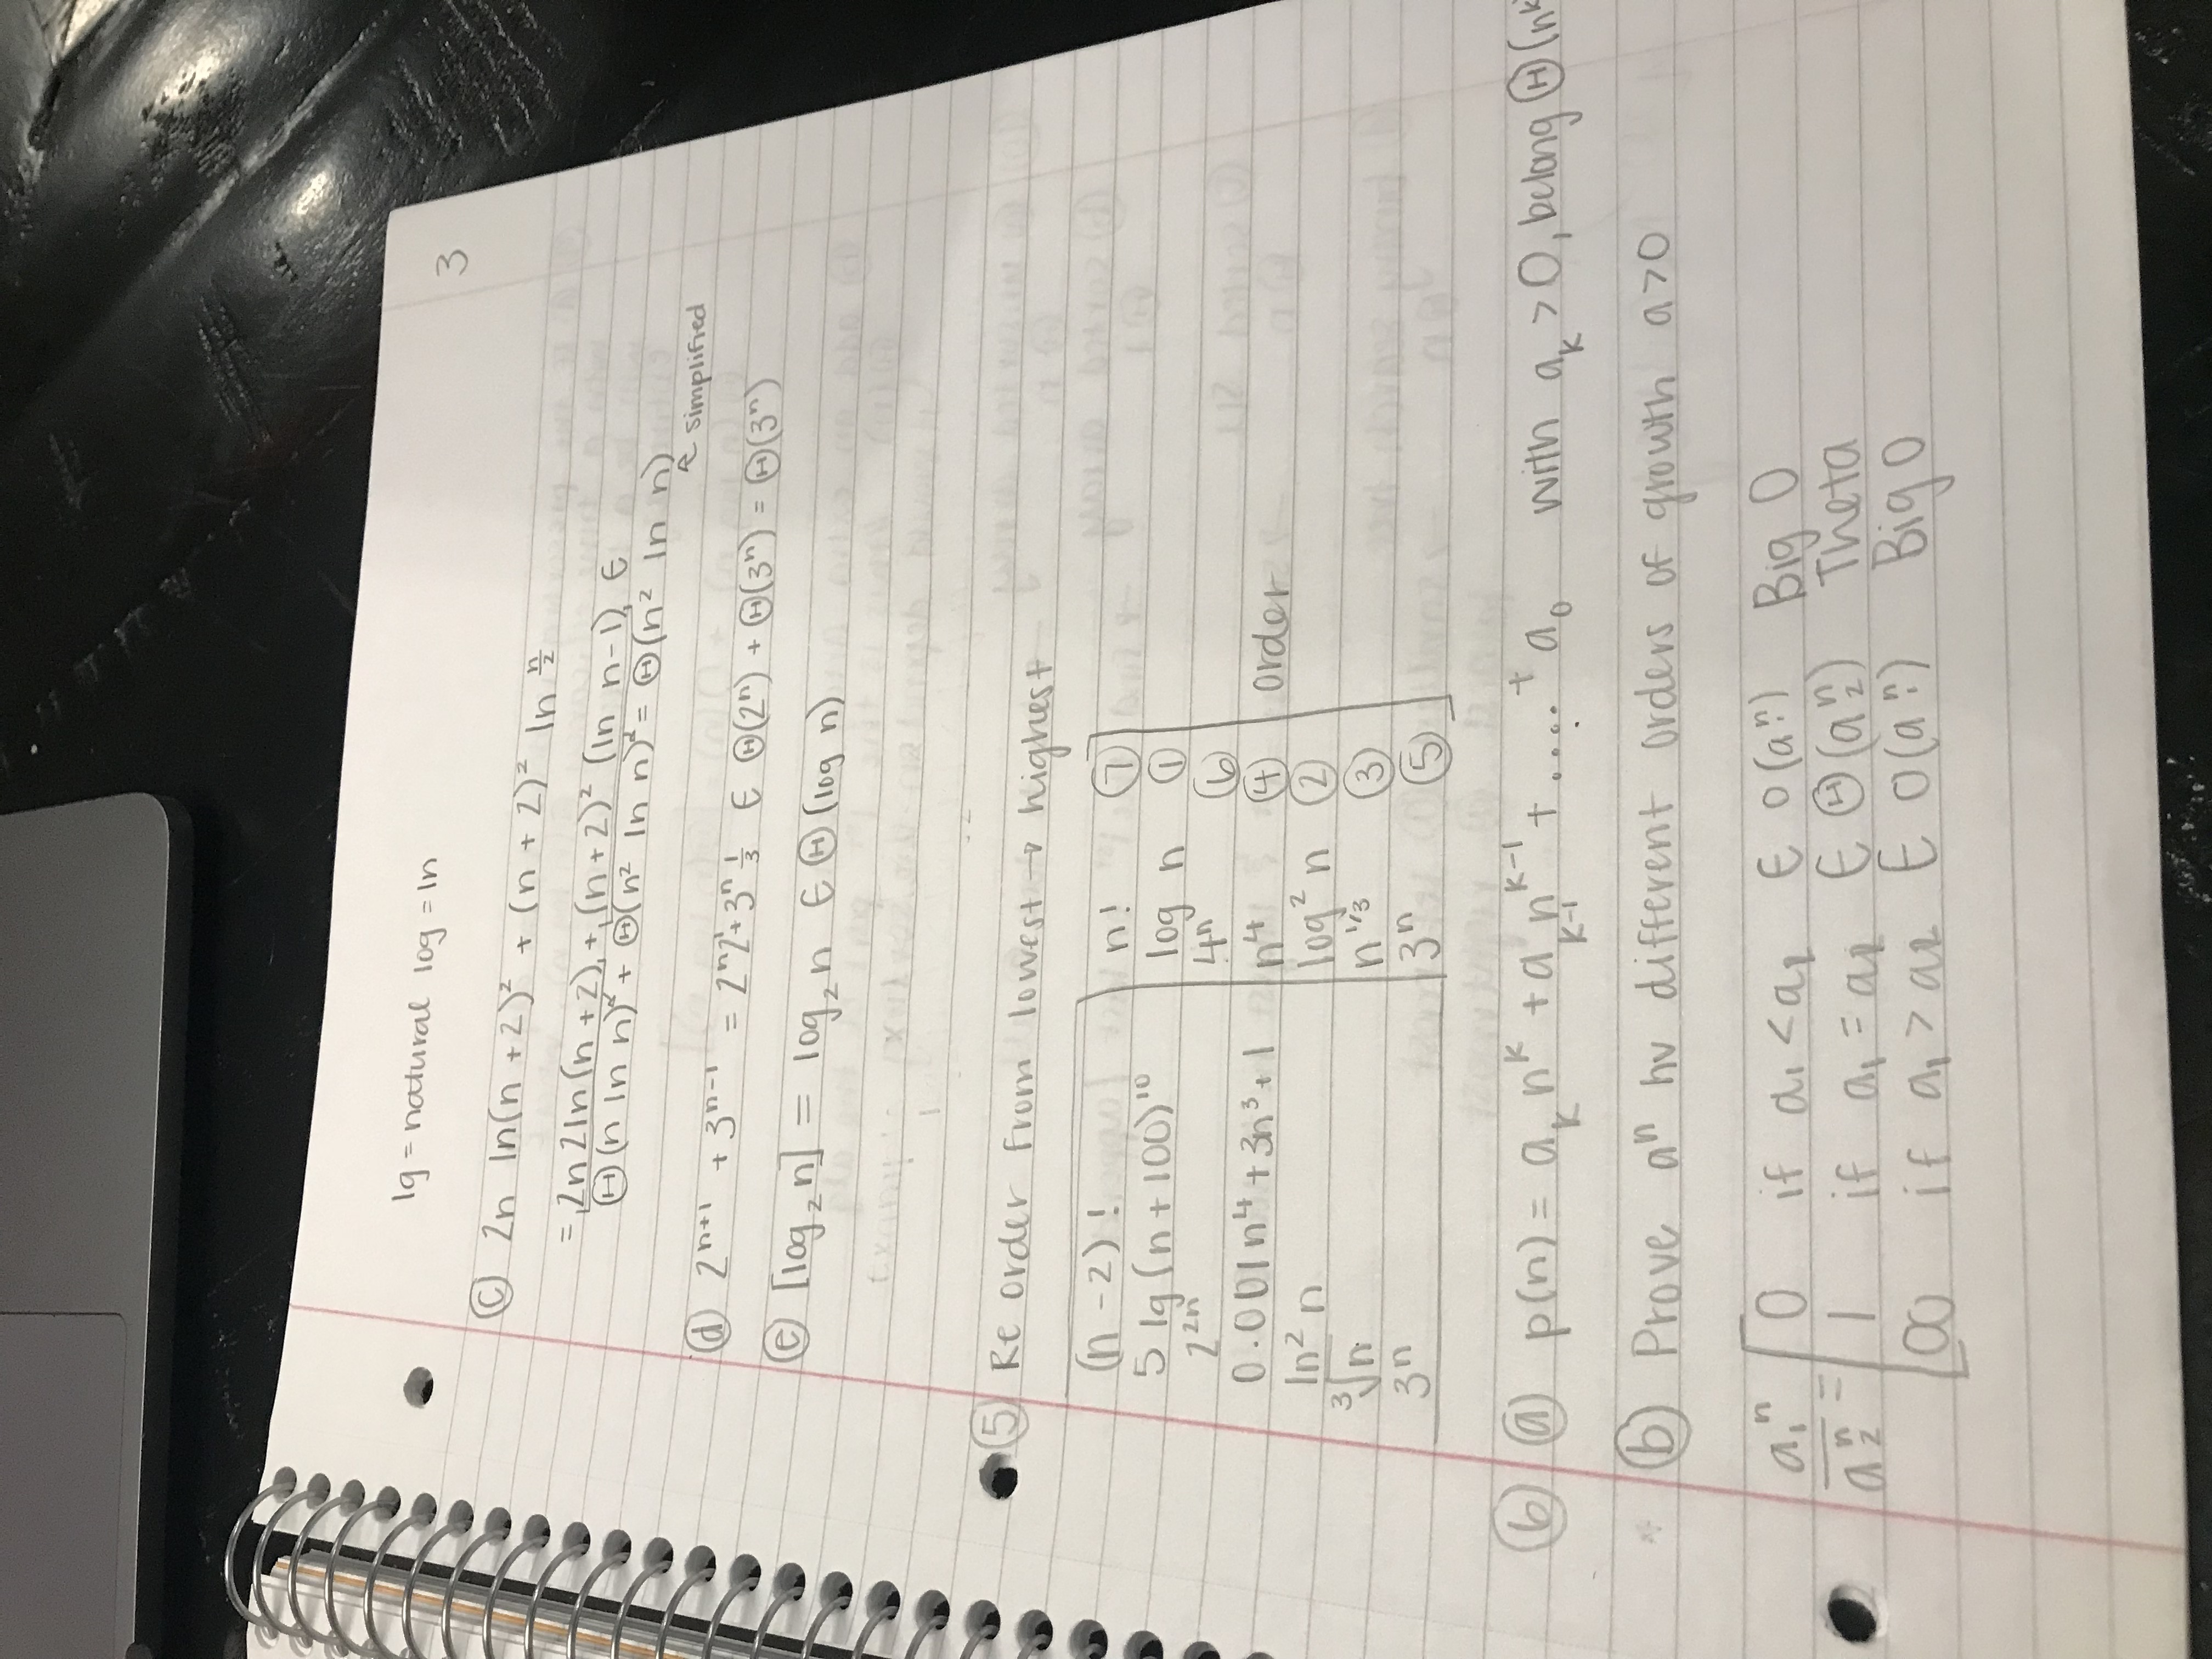 lg = natural log = ln
3
ⓒ 2n ln(n + 2)² + (n + 2)² ln n/2
= 2n 2ln(n + 2) + (n + 2)² (ln n - 1) ∈
Θ(n ln n) + Θ(n² ln n) = Θ(n² ln n)
↖ simplified
ⓓ 2ⁿ⁺¹ + 3ⁿ⁻¹ = 2ⁿ2¹ + 3ⁿ 1/3 ∈ Θ(2ⁿ) + Θ(3ⁿ) = Θ(3ⁿ)
ⓔ [log₂ n] = log₂ n ∈ Θ(log n)
⑤ Re order from lowest → highest
(n - 2)! n! ⑦
5 lg (n + 100)¹⁰ log n ①
2²ⁿ 4ⁿ ⑥
0.001n⁴ + 3n³ + 1 n⁴ ④ order
ln² n log² n ②
³√n n^1/3 ③
3ⁿ 3ⁿ ⑤
⑥ ⓐ p(n) = aₖ nᵏ + aₖ₋₁ nᵏ⁻¹ + .... + a₀ with aₖ > 0, belong Θ(nᵏ
* ⓑ Prove aⁿ hv different orders of growth a>0
a₁ⁿ / a₂ⁿ = [ 0 if a₁ < a₂ ∈ O(aⁿ) Big O
1 if a₁ = a₂ ∈ Θ(a₂ⁿ) Theta
∞ if a₁ > a₂ ∈ O(aⁿ) Big O